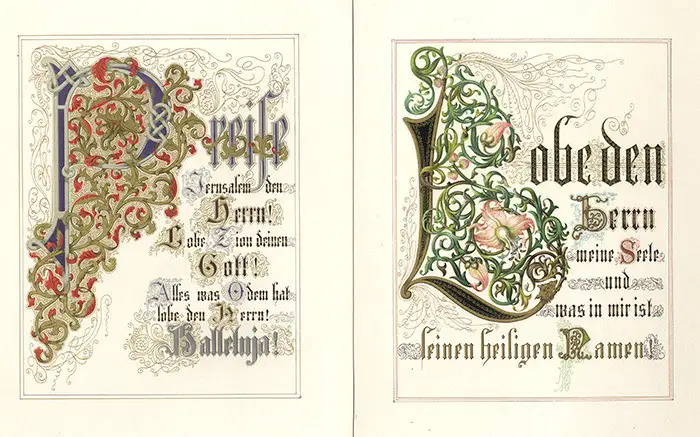 Preise
Jerusalem den
Herrn!
Lobe Zion deinen
Gott!
Alles was Odem hat
lobe den Herrn!
Halleluja!
Lobe den
Herrn
meine Seele
und
was in mir ist
seinen heiligen Namen!